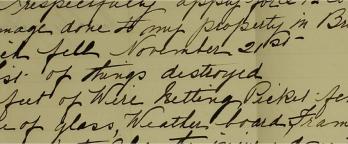 respectfully apply for
mage done to my property in Br
ch fell November 21st
list of things destroyed
feet of Wire Netting Picket fe
e of glass, Weather board, Fram